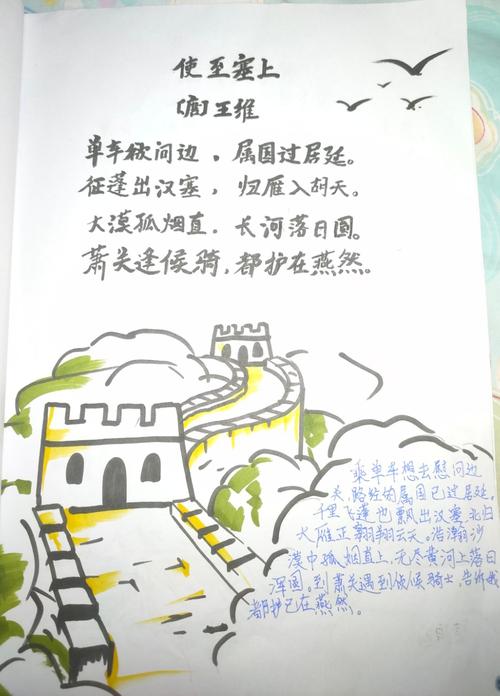 使至塞上
(唐)王维
单车欲问边,属国过居延。
征蓬出汉塞,归雁入胡天。
大漠孤烟直,长河落日圆。
萧关逢候骑,都护在燕然。
乘单车想去慰问边
关,路经的属国已过居延,
千里飞蓬也飘出汉塞,北归
大雁正翱翔云天。浩瀚沙
漠中孤烟直上,无尽黄河上落日
浑圆。到萧关遇到侦候骑士,告诉我
都护已在燕然。